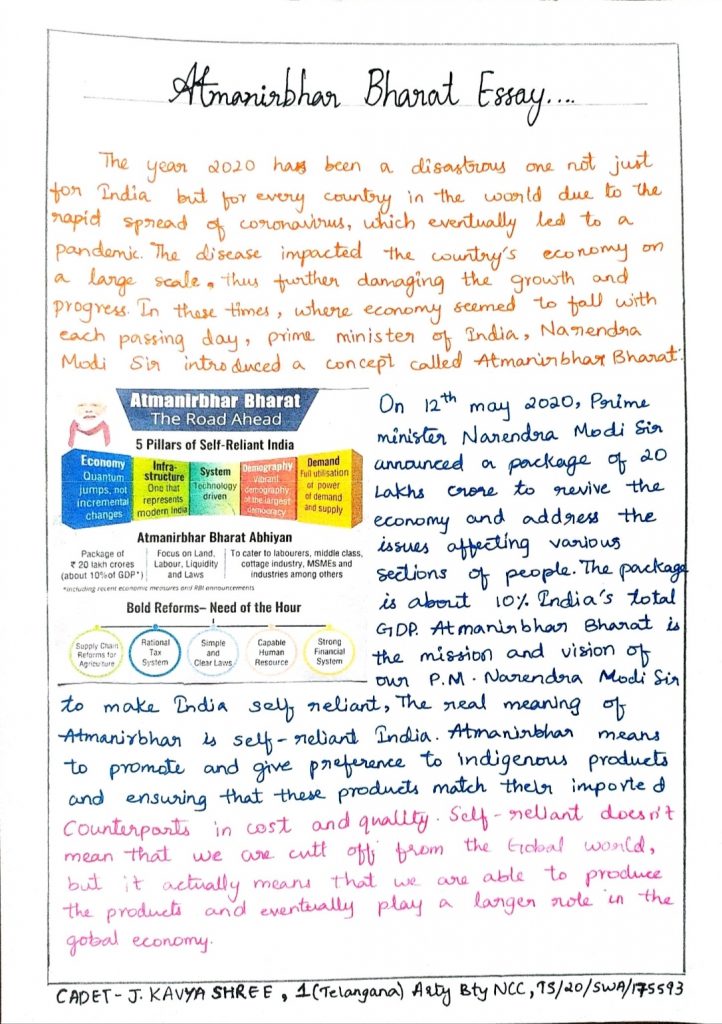 Atmanirbhar Bharat Essay....
The year 2020 has been a disastrous one not just
for India but for every country in the world due to the
rapid spread of coronavirus, which eventually led to a
pandemic. The disease impacted the country's economy on
a large scale, thus further damaging the growth and
progress. In these times, where economy seemed to fall with
each passing day, prime minister of India, Narendra
Modi Sir introduced a concept called Atmanirbhar Bharat.
Atmanirbhar Bharat
The Road Ahead
5 Pillars of Self-Reliant India
Economy
Quantum
jumps, not
incremental
changes
Infra-
structure
One that
represents
modern India
System
Technology
driven
Demography
Vibrant
demography
of the largest
democracy
Demand
Full utilisation
of power
of demand
and supply
Atmanirbhar Bharat Abhiyan
Package of
₹ 20 lakh crores
(about 10% of GDP*)
Focus on Land,
Labour, Liquidity
and Laws
To cater to labourers, middle class,
cottage industry, MSMEs and
industries among others
*Including recent economic measures and RBI announcements
Bold Reforms– Need of the Hour
Supply Chain
Reforms for
Agriculture
Rational
Tax
System
Simple
and
Clear Laws
Capable
Human
Resource
Strong
Financial
System
On 12th may 2020, Prime
minister Narendra Modi Sir
announced a package of 20
Lakhs crore to revive the
economy and address the
issues affecting various
sections of people. The package
is about 10% India's total
GDP. Atmanirbhar Bharat is
the mission and vision of
our P.M. Narendra Modi Sir
to make India self reliant, The real meaning of
Atmanirbhar is self-reliant India. Atmanirbhar means
to promote and give preference to indigenous products
and ensuring that these products match their imported
Counterparts in cost and quality. Self-reliant doesn't
mean that we are cutt off from the Gobal world,
but it actually means that we are able to produce
the products and eventually play a larger role in the
gobal economy.
CADET- J. KAVYA SHREE, 1(Telangana) Arty Bty NCC, TS/20/SWA/175593